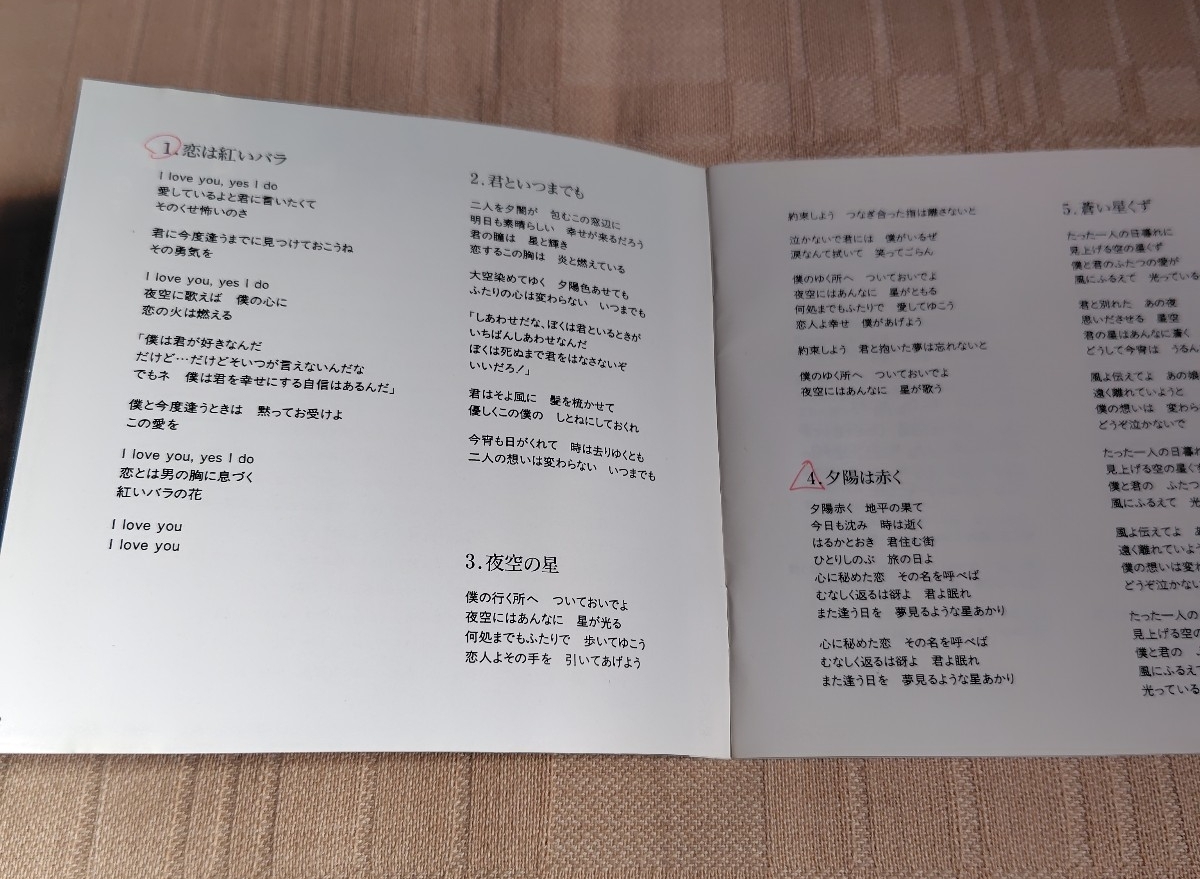 1.恋は紅いバラ
I love you, yes I do
愛しているよと君に言いたくて
そのくせ怖いのさ
君に今度逢うまでに見つけておこうね
その勇気を
I love you, yes I do
夜空に歌えば 僕の心に
恋の火は燃える
「僕は君が好きなんだ
だけど…だけどそいつが言えないんだな
でもネ 僕は君を幸せにする自信はあるんだ」
僕と今度逢うときは 黙ってお受けよ
この愛を
I love you, yes I do
恋とは男の胸に息づく
紅いバラの花
I love you
I love you
2.君といつまでも
二人を夕闇が 包むこの窓辺に
明日も素晴らしい 幸せが来るだろう
君の瞳は 星と輝き
恋するこの胸は 炎と燃えている
大空染めてゆく 夕陽色あせても
ふたりの心は変わらない いつまでも
「しあわせだな、ぼくは君といるときが
いちばんしあわせなんだ
ぼくは死ぬまで君をはなさないぞ
いいだろ!」
君はそよ風に 髪を梳かせて
優しくこの僕の しとねにしておくれ
今宵も日がくれて 時は去りゆくとも
二人の想いは変わらない いつまでも
3.夜空の星
僕の行く所へ ついておいでよ
夜空にはあんなに 星が光る
何処までもふたりで 歩いてゆこう
恋人よその手を 引いてあげよう
約束しよう つなぎ合った指は離さないと
泣かないで君には 僕がいるぜ
涙なんて拭いて 笑ってごらん
僕のゆく所へ ついておいでよ
夜空にはあんなに 星がともる
何処までもふたりで 愛してゆこう
恋人よ幸せ 僕があげよう
約束しよう 君と抱いた夢は忘れないと
僕のゆく所へ ついておいでよ
夜空にはあんなに 星が歌う
4.夕陽は赤く
夕陽赤く 地平の果て
今日も沈み 時は逝く
はるかとおき 君住む街
ひとりしのぶ 旅の日よ
心に秘めた恋 その名を呼べば
むなしく返るは谺よ 君よ眠れ
また逢う日を 夢見るような星あかり
心に秘めた恋 その名を呼べば
むなしく返るは谺よ 君よ眠れ
また逢う日を 夢見るような星あかり
5.蒼い星くず
たった一人の日暮れに
見上げる空の星くず
僕と君のふたつの愛が
風にふるえて 光っている
君と別れた あの夜
思いださせる 星空
君の星はあんなに蒼く
どうして今宵は うるん
風よ伝えてよ あの娘
遠く離れていようと
僕の想いは 変わら
どうぞ泣かないで
たった一人の日暮れ
見上げる空の星くず
僕と君の ふたつ
風にふるえて 光
風よ伝えてよ あ
遠く離れていよう
僕の想いは変わ
どうぞ泣かない
たった一人の
見上げる空の
僕と君の
風にふるえて
光っている